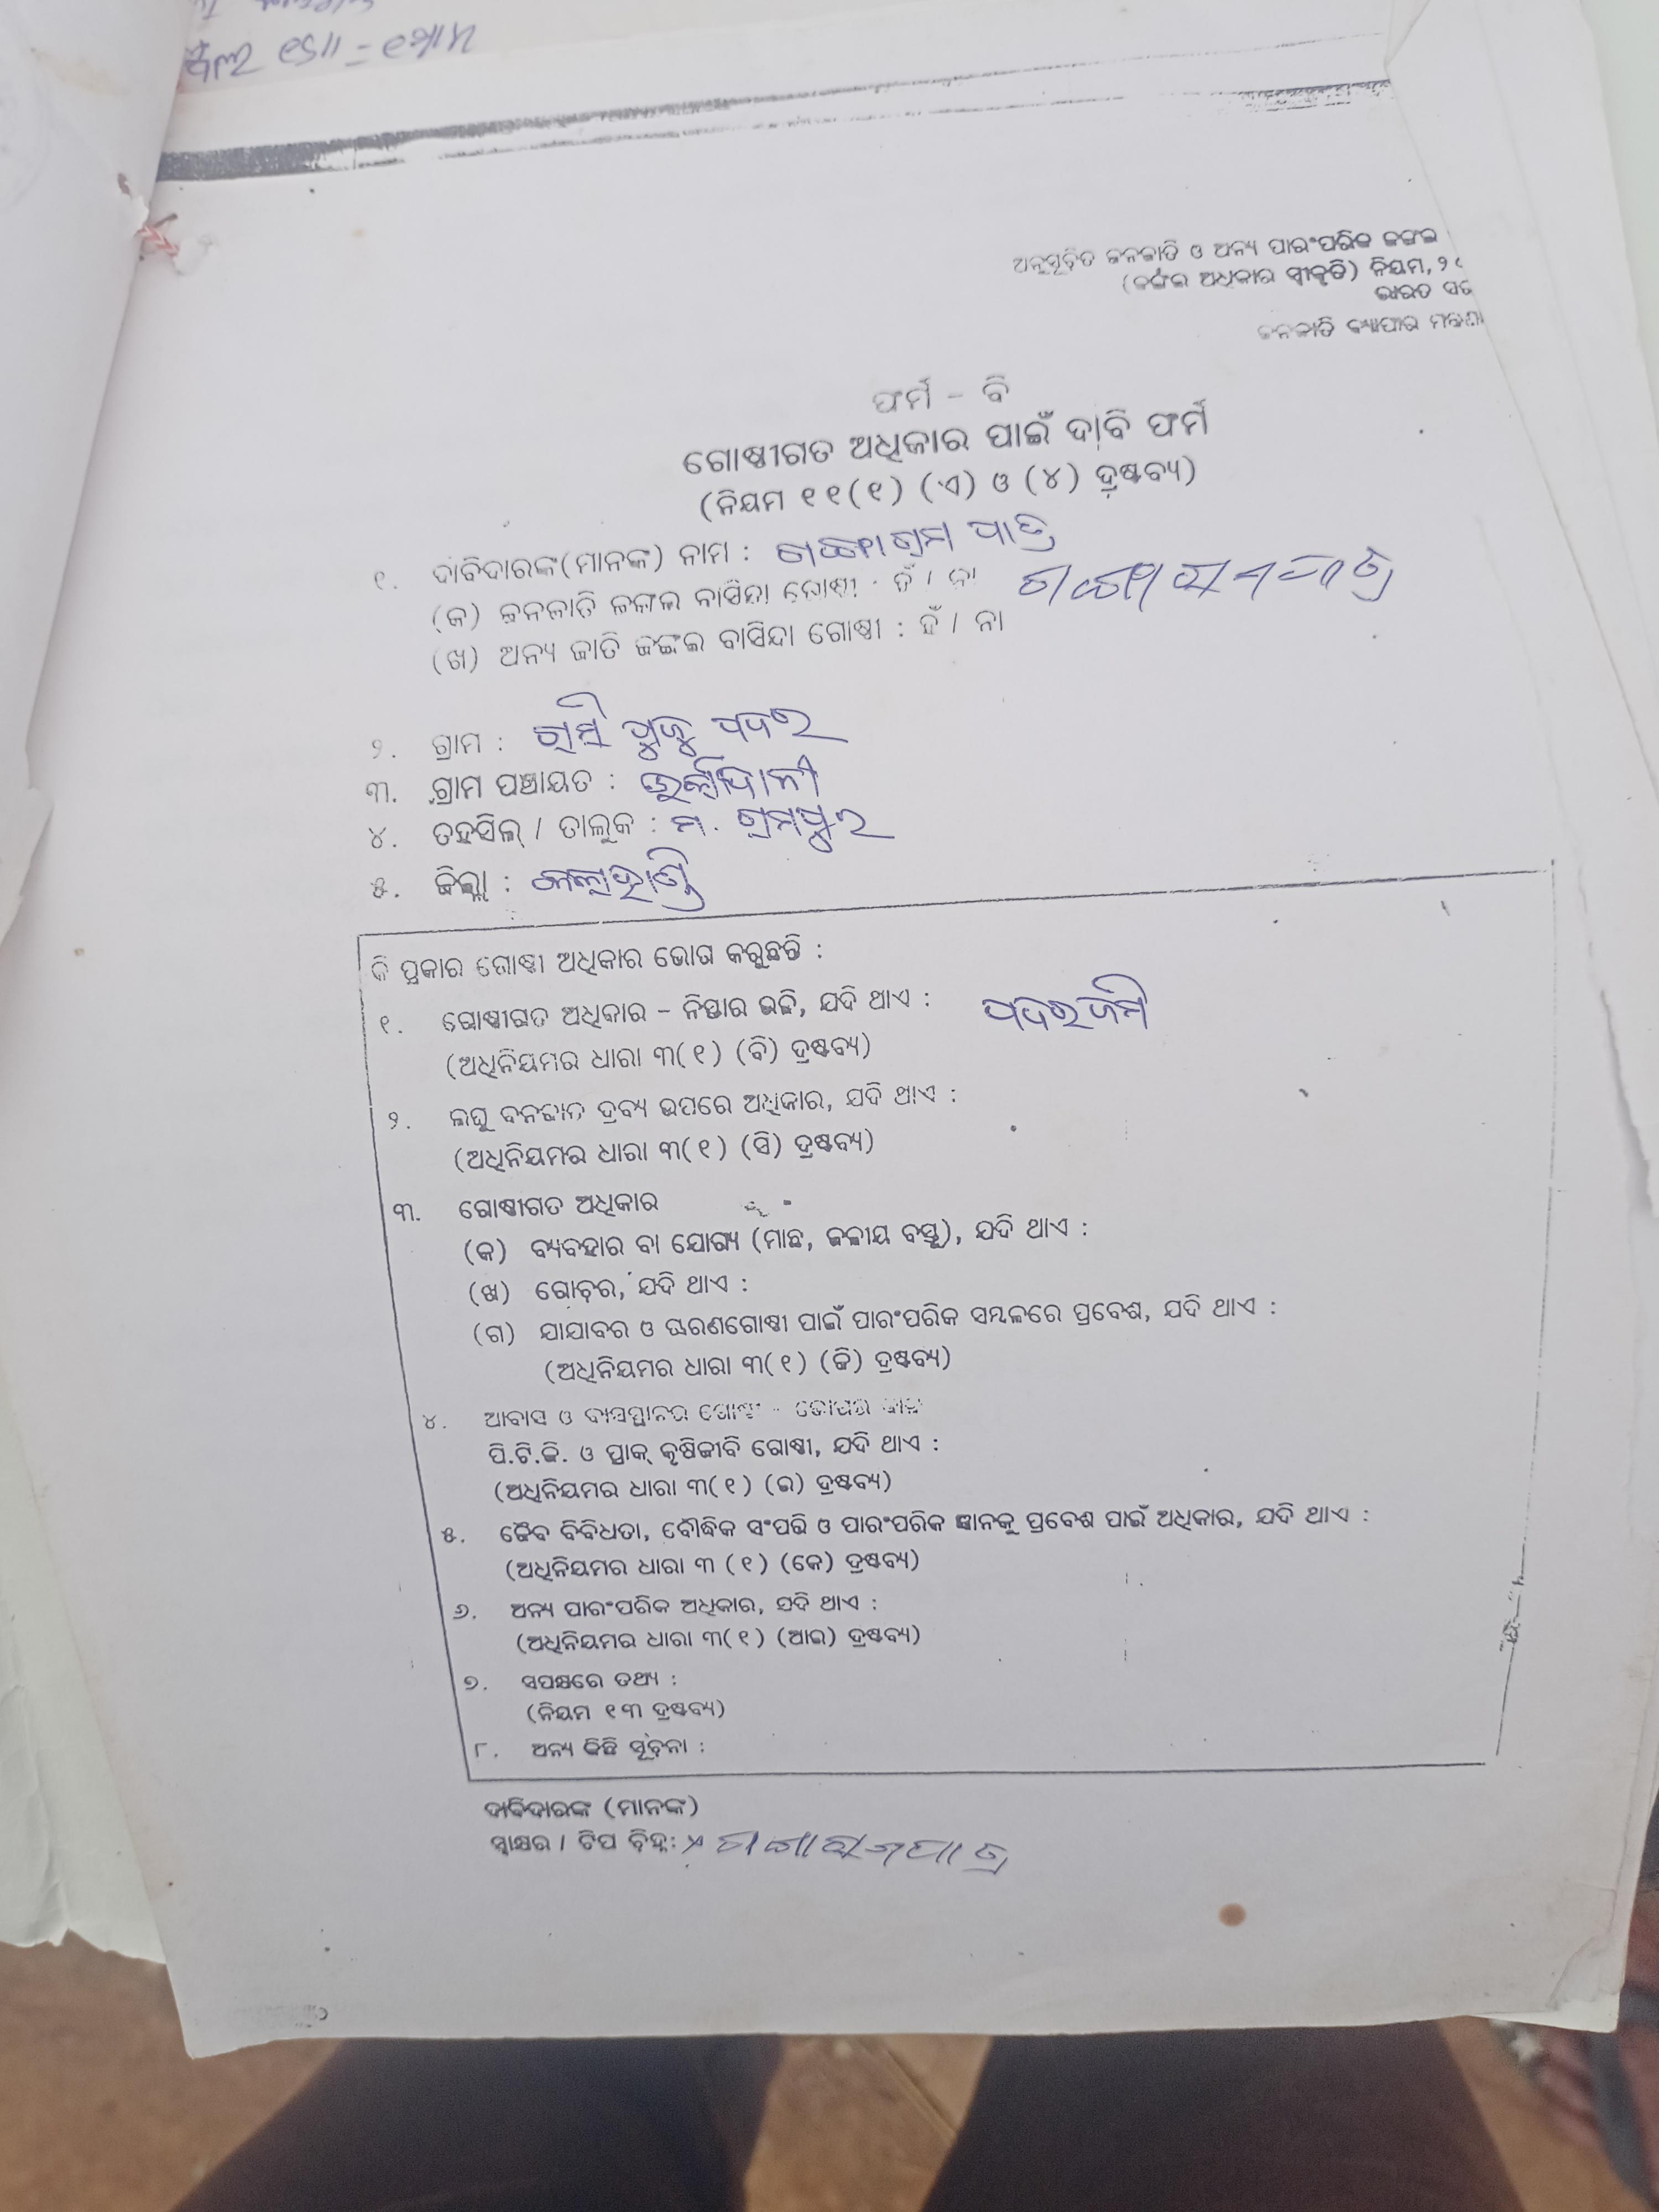 ଅନୁସୂଚିତ ଜନଜାତି ଓ ଅନ୍ୟ ପାରଂପରିକ ଜଙ୍ଗଲ
(ଜଙ୍ଗଲ ଅଧିକାର ସ୍ୱୀକୃତି) ନିୟମ, ୨
ଭାରତ
ଜନଜାତି ବ୍ୟାପାର
ଫର୍ମ - ବି
ଗୋଷ୍ଠୀଗତ ଅଧିକାର ପାଇଁ ଦାବି ଫର୍ମ
(ନିୟମ ୧୧(୧) (ଏ) ଓ (୪) ଦ୍ରଷ୍ଟବ୍ୟ)
୧. ଦାବିଦାରଙ୍କ(ମାନଙ୍କ) ନାମ :
(କ) ଜନଜାତି ଜଙ୍ଗଲ ବାସିନ୍ଦା ଗୋଷ୍ଠୀ : ହଁ / ନା
(ଖ) ଅନ୍ୟ ଜାତି ଜଙ୍ଗଲ ବାସିନ୍ଦା ଗୋଷ୍ଠୀ : ହଁ / ନା
୨. ଗ୍ରାମ : ପଦର
୩. ଗ୍ରାମ ପଞ୍ଚାୟତ :
୪. ତହସିଲ୍ / ତାଲୁକ : ମ. ରାମପୁର
୫. ଜିଲ୍ଲା : କଳାହାଣ୍ଡି
କି ପ୍ରକାର ଗୋଷ୍ଠୀ ଅଧିକାର ଭୋଗ କରୁଛନ୍ତି :
୧. ଗୋଷ୍ଠୀଗତ ଅଧିକାର – ନିସ୍ତାର ଭଳି, ଯଦି ଥାଏ : ପଦରଜମି
(ଅଧିନିୟମର ଧାରା ୩(୧) (ବି) ଦ୍ରଷ୍ଟବ୍ୟ)
୨. ଲଘୁ ବନଜାତ ଦ୍ରବ୍ୟ ଉପରେ ଅଧିକାର, ଯଦି ଥାଏ :
(ଅଧିନିୟମର ଧାରା ୩(୧) (ସି) ଦ୍ରଷ୍ଟବ୍ୟ)
୩. ଗୋଷ୍ଠୀଗତ ଅଧିକାର
(କ) ବ୍ୟବହାର ବା ଯୋଗ୍ୟ (ମାଛ, ଜଳୀୟ ବସ୍ତୁ), ଯଦି ଥାଏ :
(ଖ) ଗୋଚର, ଯଦି ଥାଏ :
(ଗ) ଯାଯାବର ଓ ଭ୍ରରଣଗୋଷ୍ଠୀ ପାଇଁ ପାରଂପରିକ ସମ୍ବଳରେ ପ୍ରବେଶ, ଯଦି ଥାଏ :
(ଅଧିନିୟମର ଧାରା ୩(୧) (ଜି) ଦ୍ରଷ୍ଟବ୍ୟ)
୪. ଆବାସ ଓ ବାସସ୍ଥାନର ଗୋଷ୍ଠୀ -
ପି.ଟି.ଜି. ଓ ପ୍ରାକ୍ କୃଷିଜୀବି ଗୋଷ୍ଠୀ, ଯଦି ଥାଏ :
(ଅଧିନିୟମର ଧାରା ୩(୧) (ଇ) ଦ୍ରଷ୍ଟବ୍ୟ)
୫. ଜୈବ ବିବିଧତା, ବୌଦ୍ଧିକ ସଂପତ୍ତି ଓ ପାରଂପରିକ ଜ୍ଞାନକୁ ପ୍ରବେଶ ପାଇଁ ଅଧିକାର, ଯଦି ଥାଏ :
(ଅଧିନିୟମର ଧାରା ୩ (୧) (କେ) ଦ୍ରଷ୍ଟବ୍ୟ)
୬. ଅନ୍ୟ ପାରଂପରିକ ଅଧିକାର, ଯଦି ଥାଏ :
(ଅଧିନିୟମର ଧାରା ୩(୧) (ଆଇ) ଦ୍ରଷ୍ଟବ୍ୟ)
୭. ସପକ୍ଷରେ ତଥ୍ୟ :
(ନିୟମ ୧୩ ଦ୍ରଷ୍ଟବ୍ୟ)
୮. ଅନ୍ୟ କିଛି ସୂଚନା :
ଦାବିଦାରଙ୍କ (ମାନଙ୍କ)
ସ୍ୱାକ୍ଷର / ଟିପ ଚିହ୍ନ: